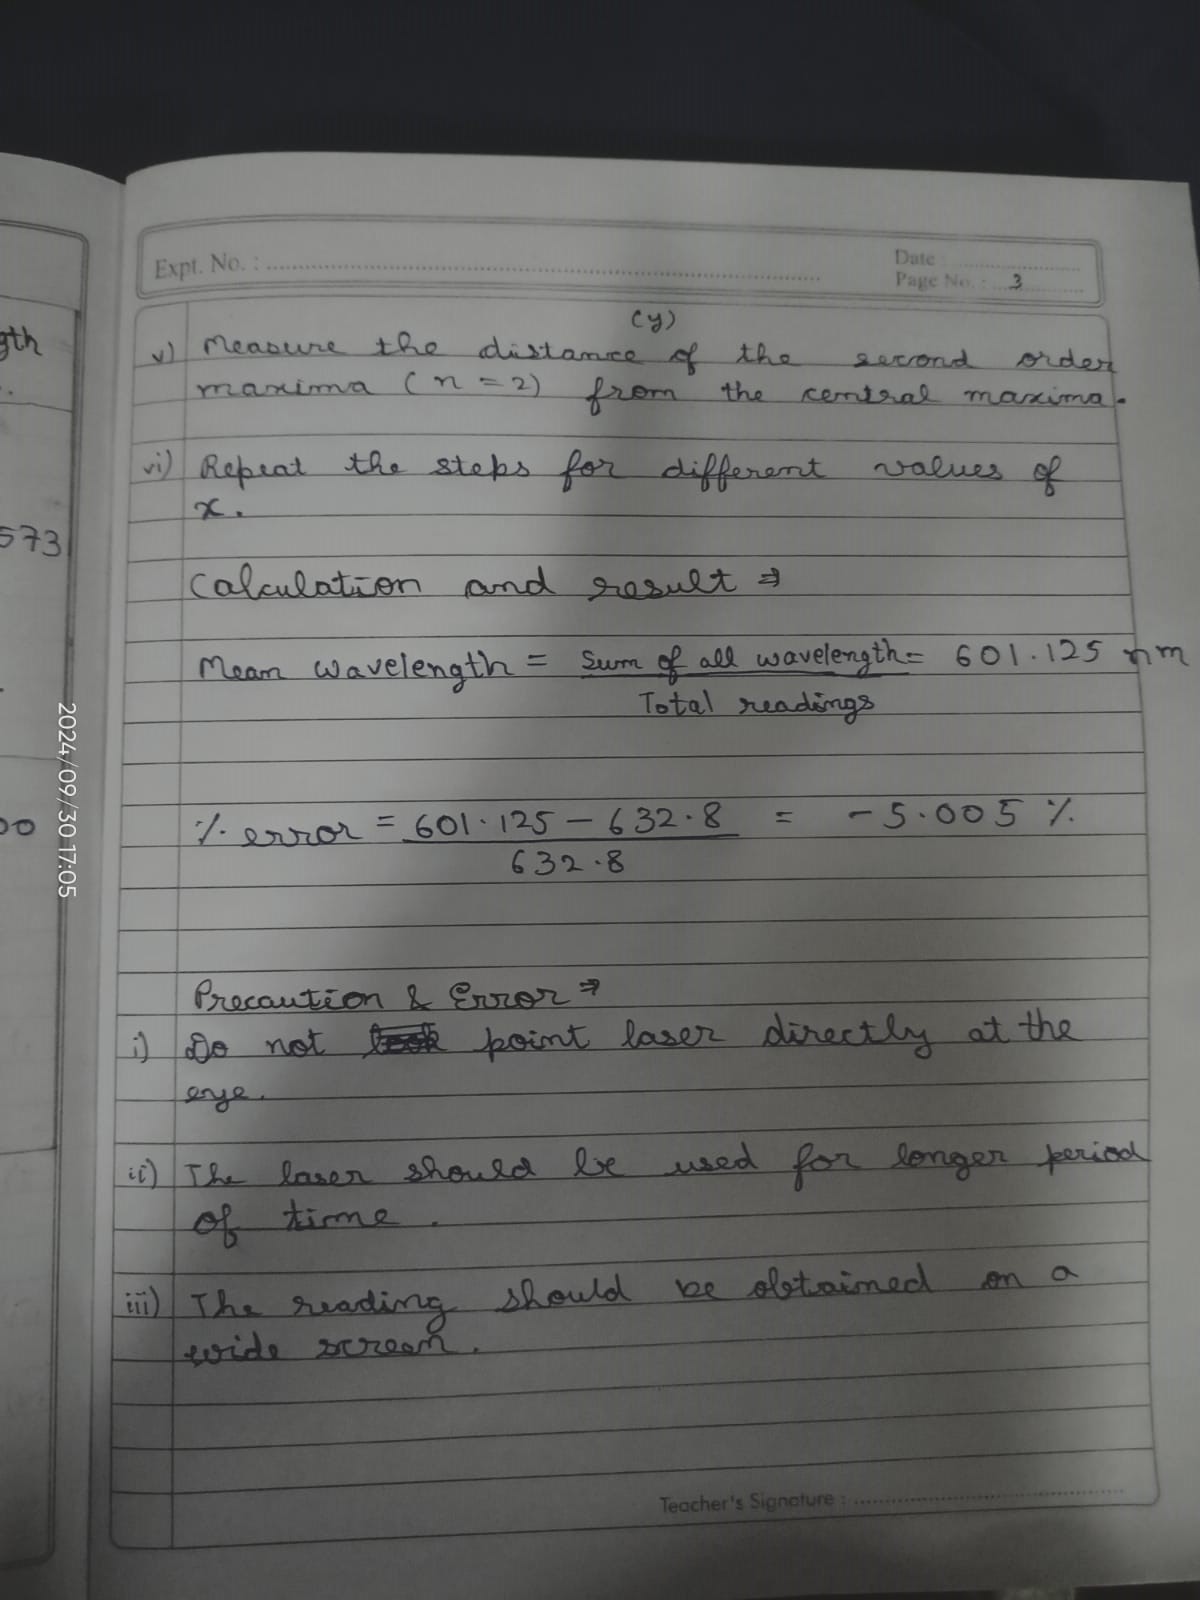 Expt. No. :
Date
Page No. : 3
(y)
v) Measure the distance of the second order
maxima (n = 2) from the central maxima.
vi) Repeat the steps for different values of
x.
Calculation and result ⇒
Mean wavelength = Sum of all wavelength = 601.125 nm
Total readings
% error = 601.125 - 632.8 = - 5.005 %
632.8
Precaution & Error ⇒
i) Do not point laser directly at the
eye.
ii) The laser should be used for longer period
of time.
iii) The reading should be obtained on a
wide screen.
Teacher's Signature :
gth
573
00
2024/09/30 17:05